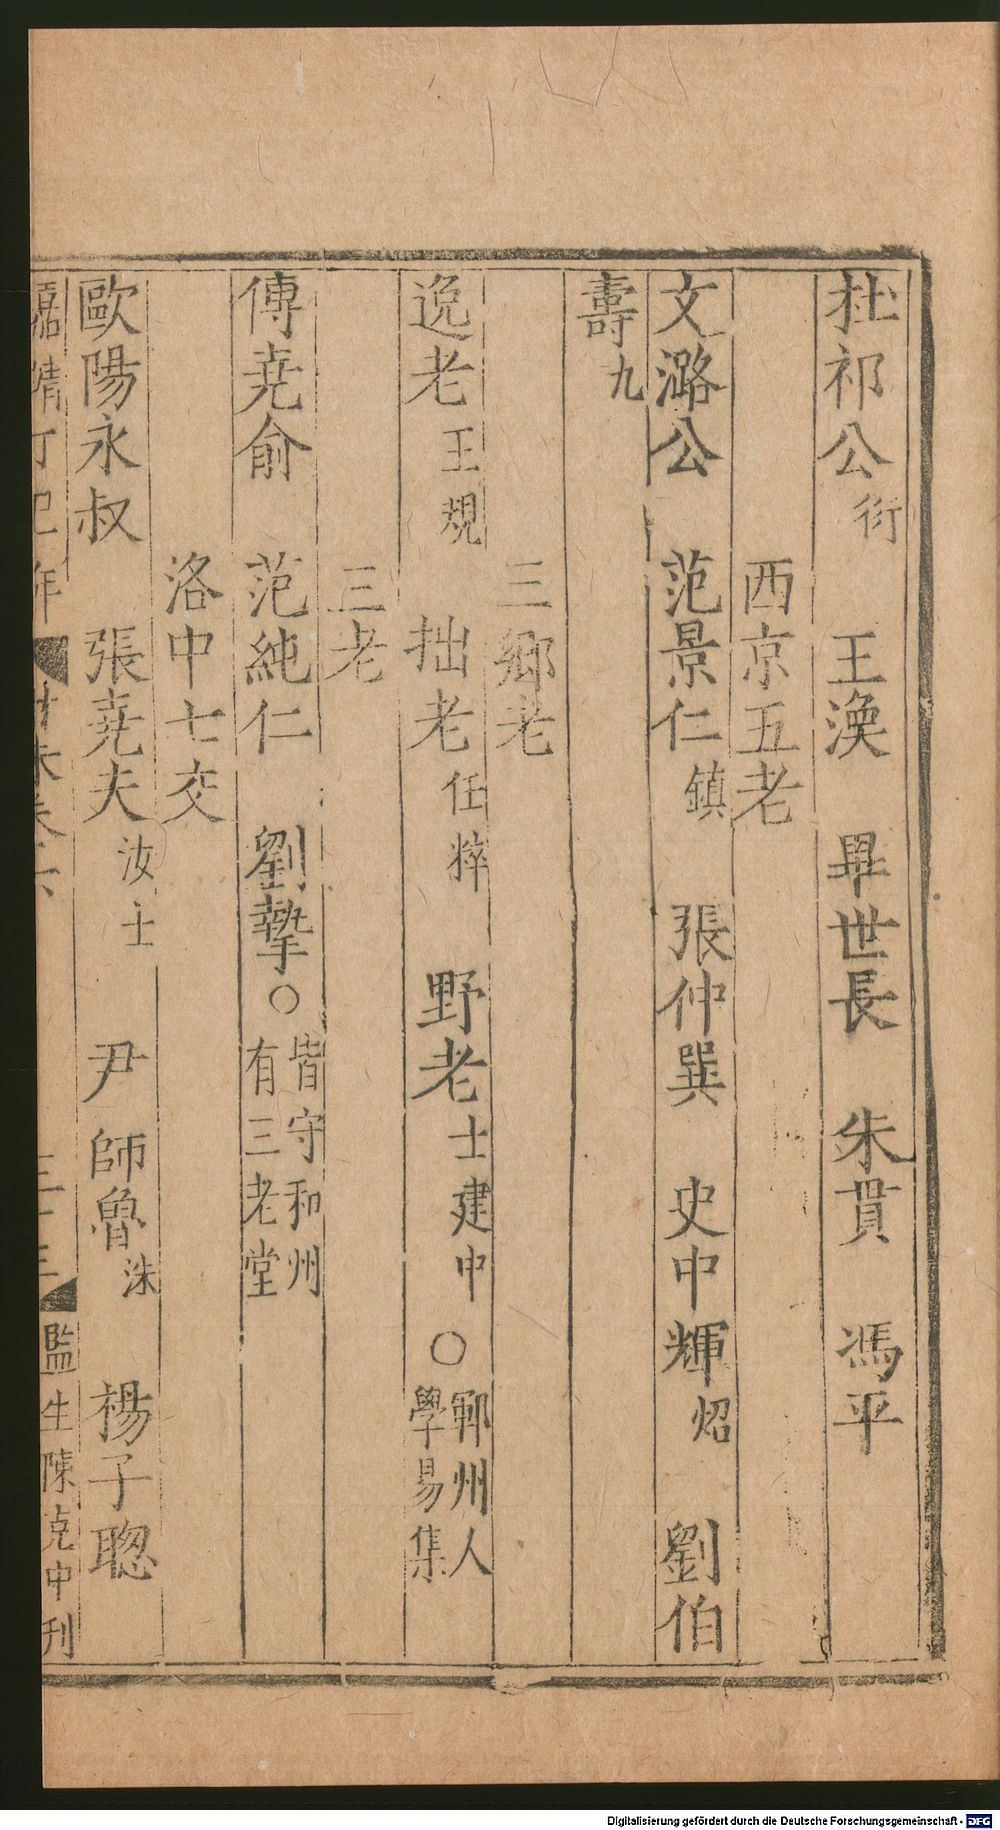 杜祁公衍 王渙 畢世長 朱貫 馮平
西京五老
文潞公 范景仁鎮 張仲巽 史中輝炤 劉伯
壽九
三鄉老
逸老王規 拙老任粹 野老士建中○鄆州人學易集
三老
傅堯俞 范純仁 劉摯○皆守和州有三老堂
洛中七交
歐陽永叔 張堯夫汝士 尹師魯洙 楊子聰
嘉靖丁巳年 監生陳克中刊
Digitalisierung gefördert durch die Deutsche Forschungsgemeinschaft - DFG